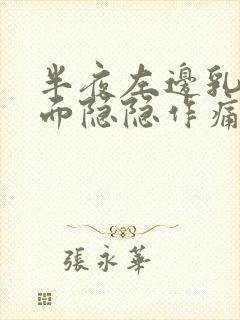 半夜左邊乳
而隐隐作痛
張永華